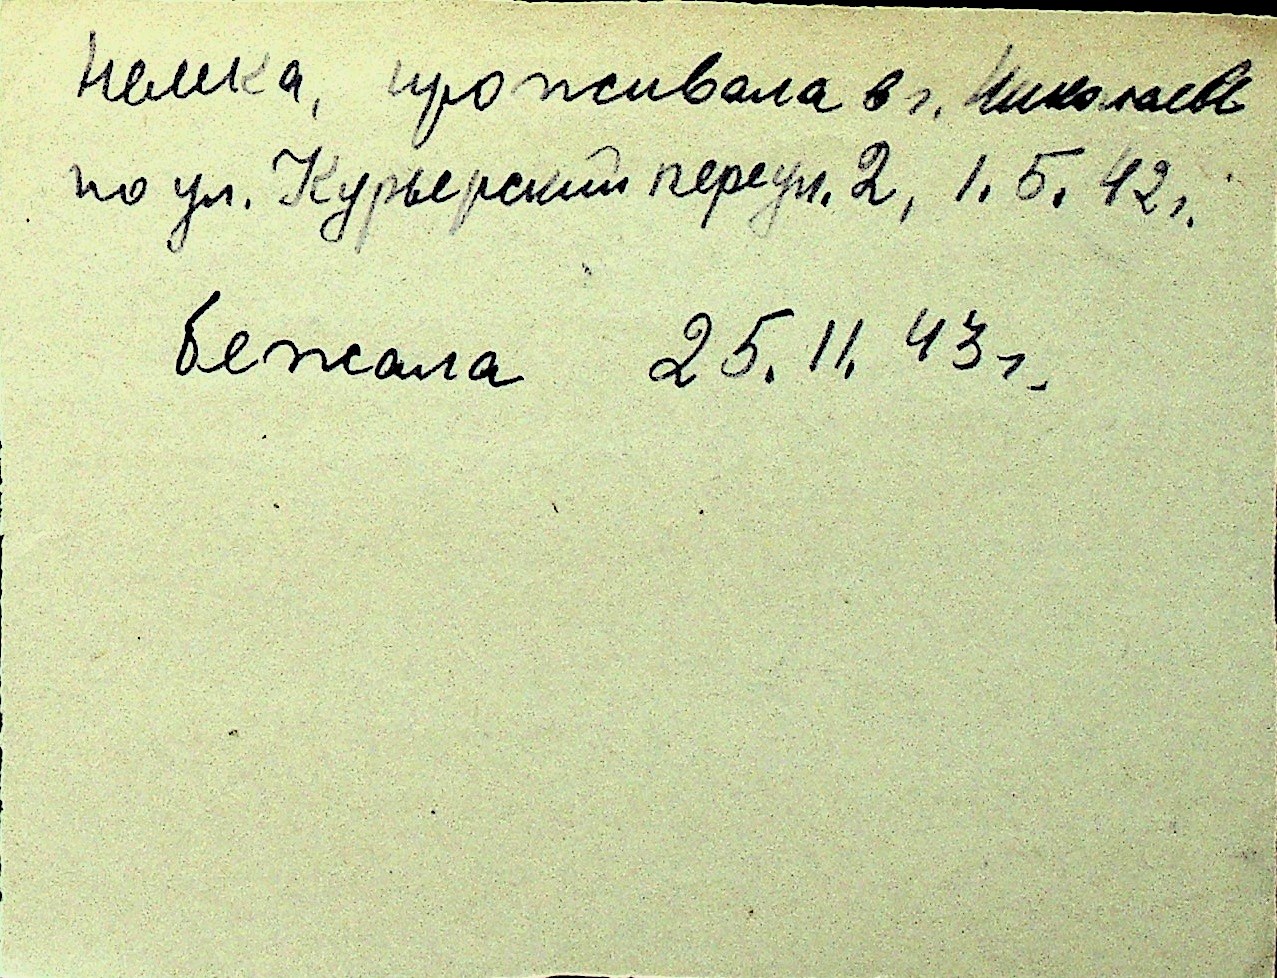 немка, проживала в г. Николаеве
по ул. Курьерский переул. 2, 1.5.42г.
бежала 25.11.43г.